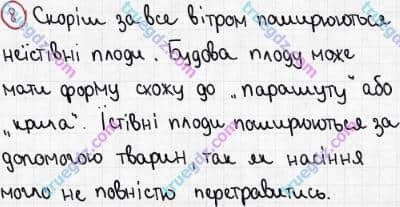 8 Скоріш за все вітром поширюються
неїстівні плоди. Будова плоду може
мати форму схожу до „парашуту" або
„крила". Їстівні плоди поширюються за
допомогою тварин, так як насіння
могло не повністю перетравитись.